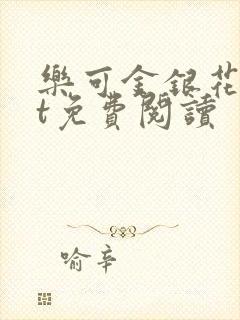 樂可金銀花
t免費閱讀
喻辛